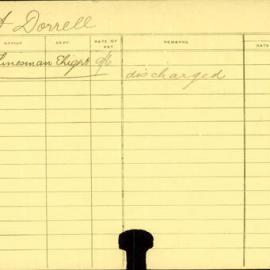 A Dorrell
OFFICE DEPT. RATE OF PAY REMARKS DATE
Linesman 9/6 discharged